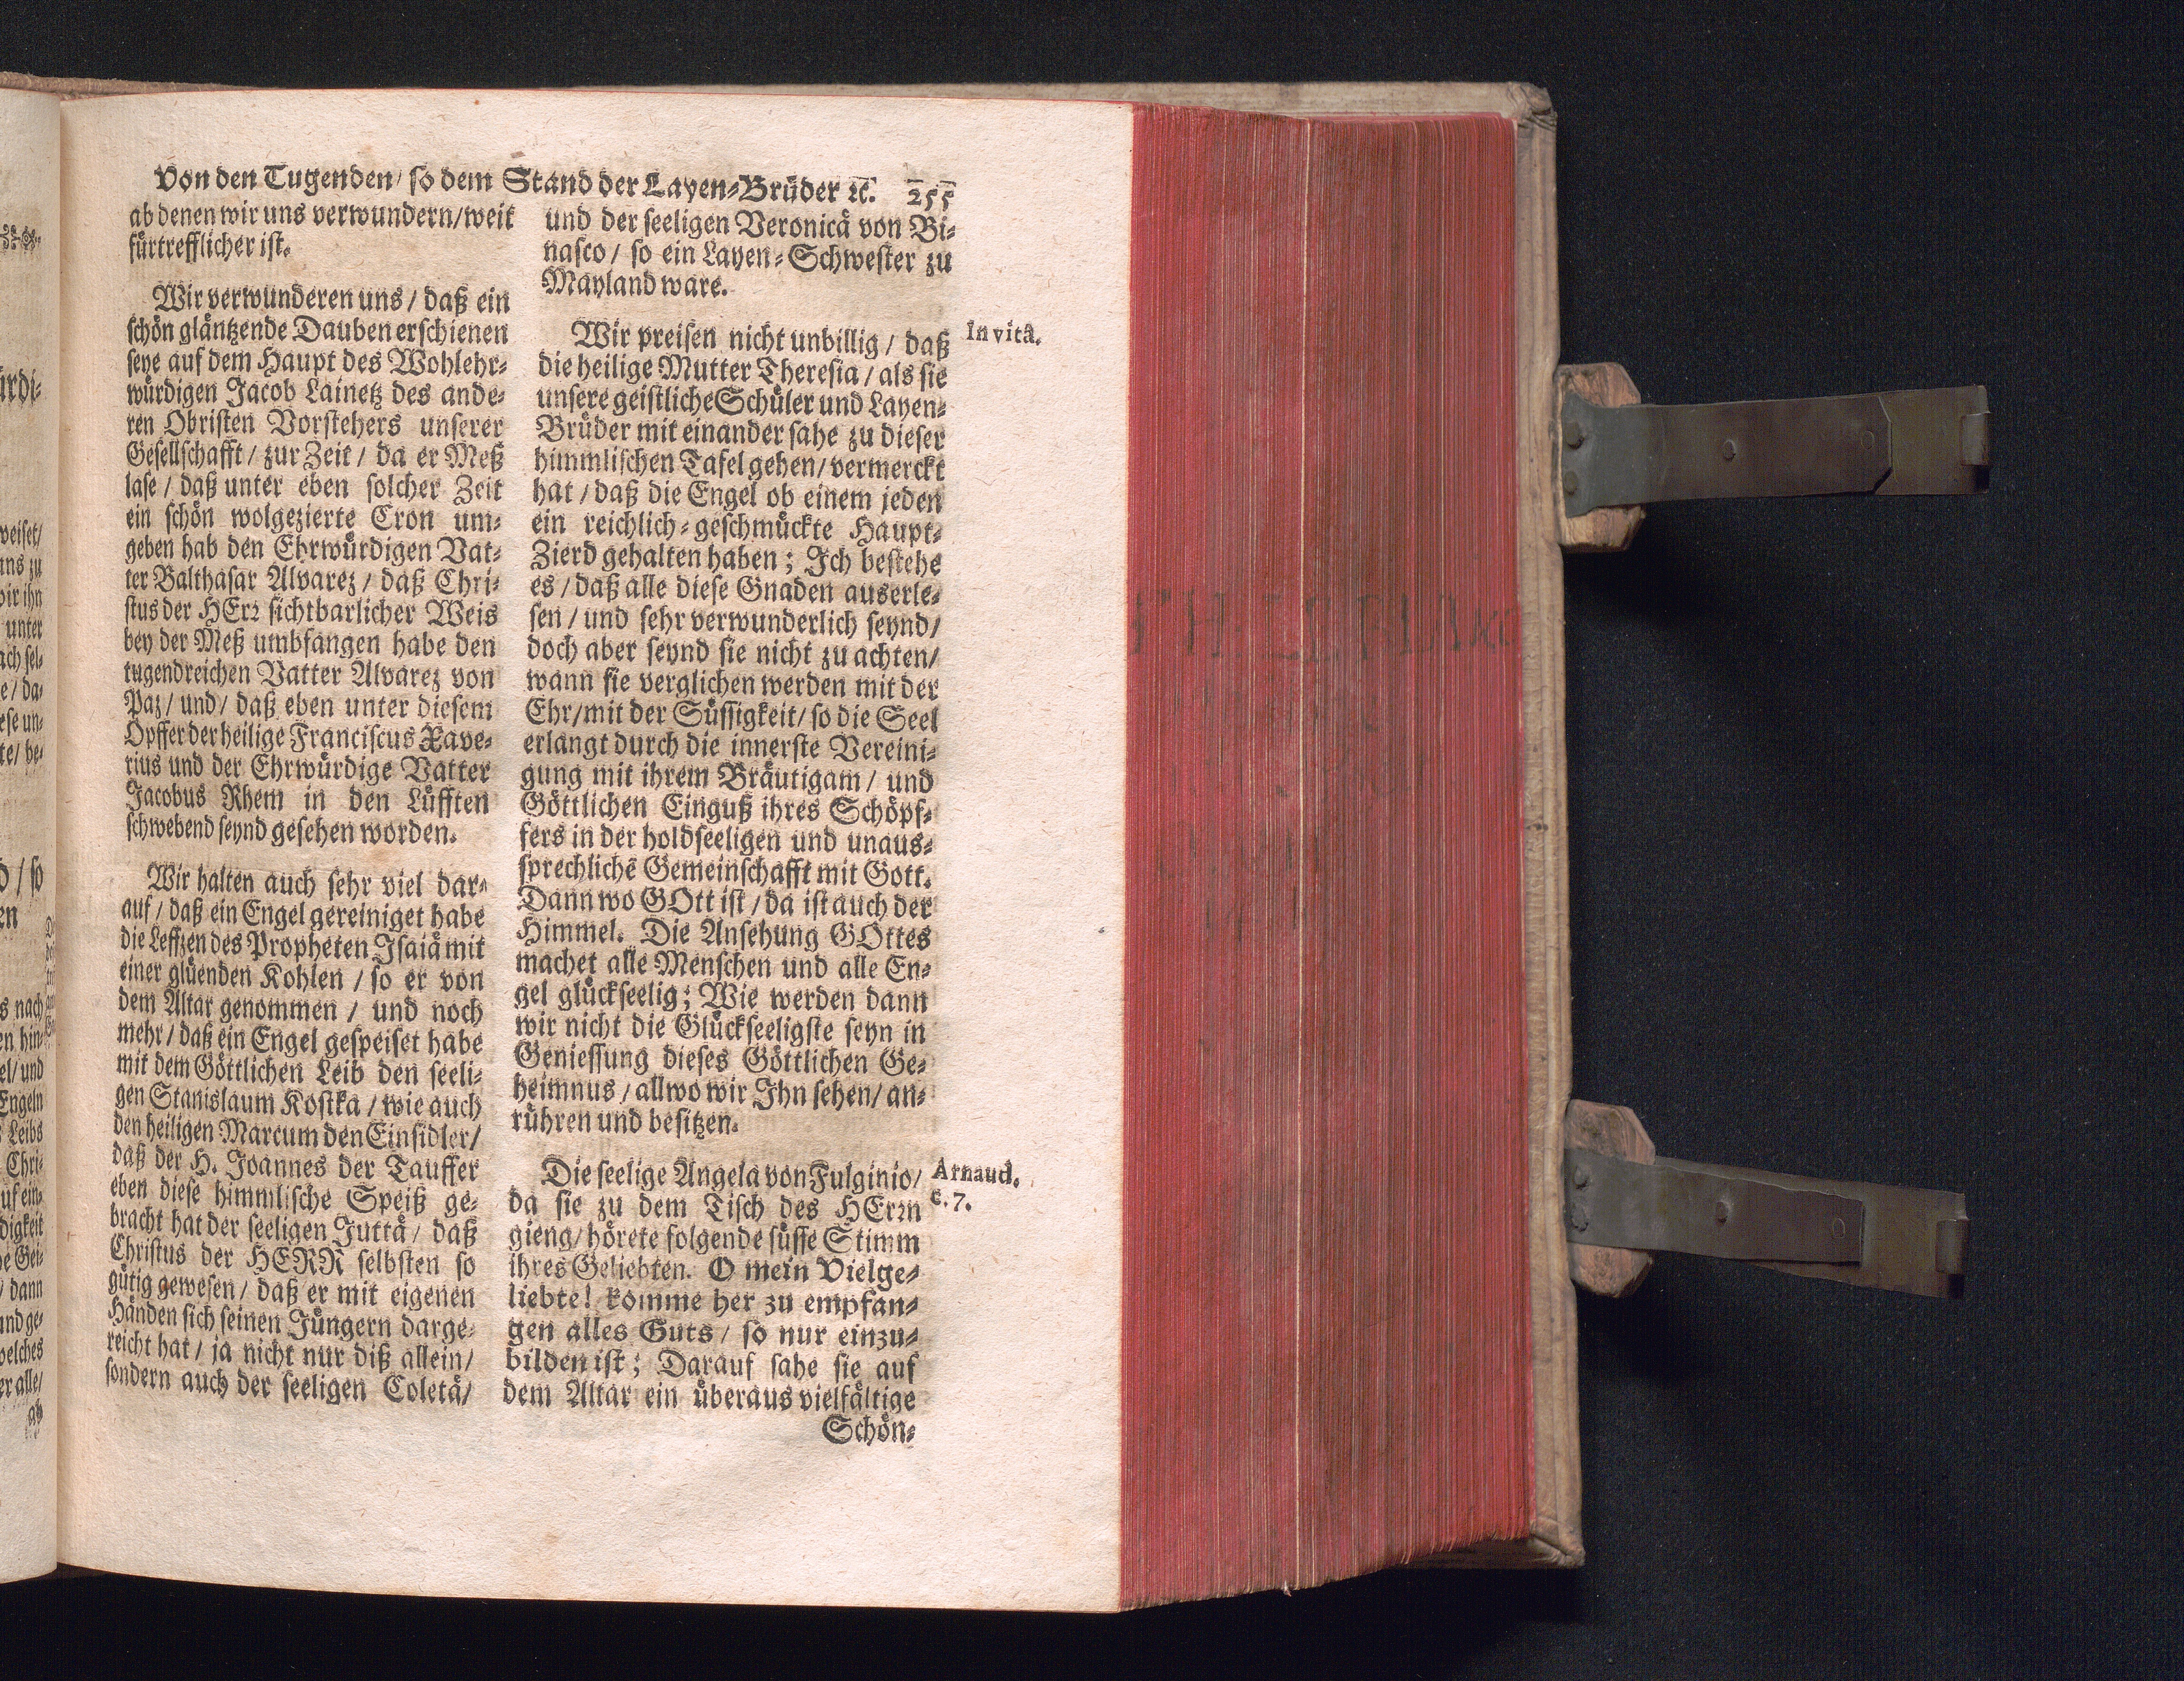 Von den Tugenden / so dem Stand der Layen-Brüder ꝛc. 255
ab denen wir uns verwundern / weit
fürtrefflicher ist.
Wir verwunderen uns / daß ein
schön gläntzende Dauben erschienen
seye auf dem Haupt des Wohlehr-
würdigen Jacob Lainetz des ande-
ren Obristen Vorstehers unserer
Gesellschafft / zur Zeit / da er Meß
lase / daß unter eben solcher Zeit
ein schön wolgezierte Cron um-
geben hab den Ehrwürdigen Vat-
ter Balthasar Alvarez / daß Chri-
stus der HErꝛ sichtbarlicher Weis
bey der Meß umbfangen habe den
tugendreichen Vatter Alvarez von
Paz / und / daß eben unter diesem
Opffer der heilige Franciscus Xave-
rius und der Ehrwürdige Vatter
Jacobus Rhem in den Lüfften
schwebend seynd gesehen worden.
Wir halten auch sehr viel dar-
auf / daß ein Engel gereiniget habe
die Leffzen des Propheten Isaiä mit
einer glüenden Kohlen / so er von
dem Altar genommen / und noch
mehr / daß ein Engel gespeiset habe
mit dem Göttlichen Leib den seeli-
gen Stanislaum Kostka / wie auch
den heiligen Marcum den Einsidler /
daß der H. Joannes der Tauffer
eben diese himmlische Speiß ge-
bracht hat der seeligen Juttä / daß
Christus der HERR selbsten so
gütig gewesen / daß er mit eigenen
Händen sich seinen Jüngern darge-
reicht hat / ja nicht nur diß allein /
sondern auch der seeligen Coletä /
und der seeligen Veronicä von Bi-
nasco / so ein Layen-Schwester zu
Mayland ware.
Wir preisen nicht unbillig / daß
In vitâ.
die heilige Mutter Theresia / als sie
unsere geistliche Schüler und Layen-
Brüder mit einander sahe zu dieser
himmlischen Tafel gehen / vermerckt
hat / daß die Engel ob einem jeden
ein reichlich-geschmückte Haupt-
Zierd gehalten haben; Ich bestehe
es / daß alle diese Gnaden auserle-
sen / und sehr verwunderlich seynd /
doch aber seynd sie nicht zu achten /
wann sie verglichen werden mit der
Ehr / mit der Süssigkeit / so die Seel
erlangt durch die innerste Vereini-
gung mit ihrem Bräutigam / und
Göttlichen Einguß ihres Schöpf-
fers in der holdseeligen und unaus-
sprechlichē Gemeinschafft mit Gott.
Dann wo GOtt ist / da ist auch der
Himmel. Die Ansehung GOttes
machet alle Menschen und alle En-
gel glückseelig; Wie werden dann
wir nicht die Glückseeligste seyn in
Geniessung dieses Göttlichen Ge-
heimnus / allwo wir Ihn sehen / an-
rühren und besitzen.
Die seelige Angela von Fulginio /
Arnaud.
c. 7.
da sie zu dem Tisch des HErꝛn
gieng / hörete folgende süsse Stimm
ihres Geliebten. O mein Vielge-
liebte! komme her zu empfan-
gen alles Guts / so nur einzu-
bilden ist; Darauf sahe sie auf
dem Altar ein überaus vielfältige
Schön-